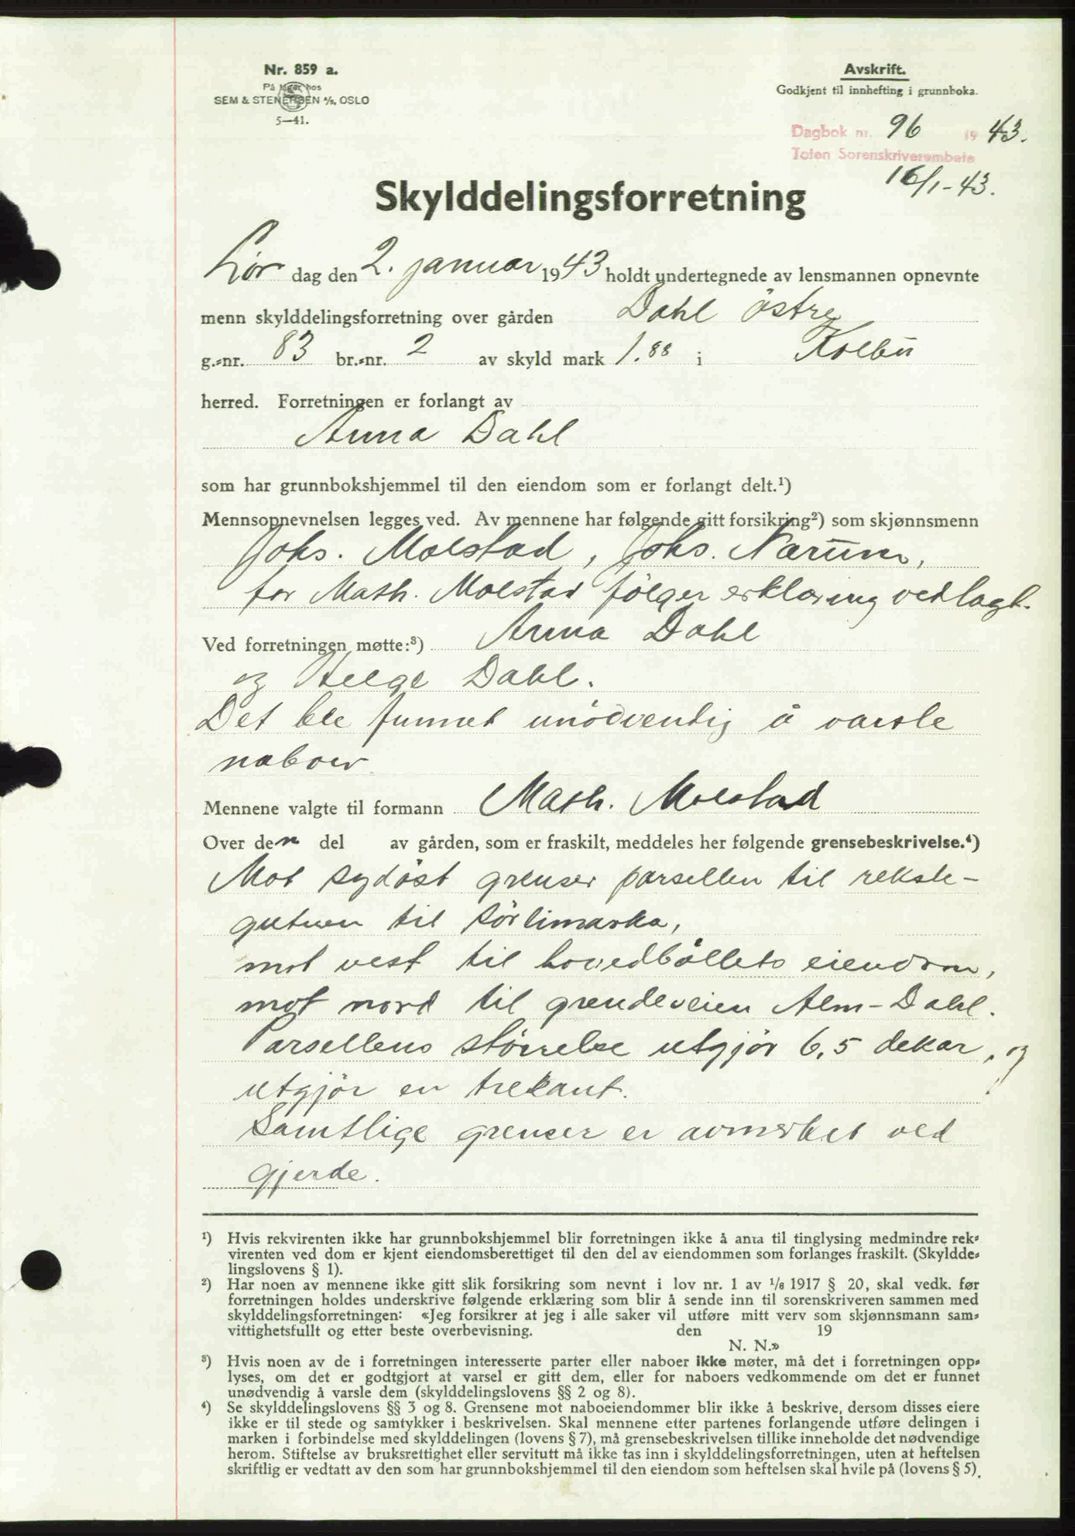 Nr. 859 a.
På lager hos
SEM & STENERSEN A/S, OSLO
5—41.
Avskrift.
Godkjent til innhefting i grunnboka.
Dagbok nr. 96 19 43.
Toten Sorenskriverembete
16/1-43.
Skylddelingsforretning
Lør dag den 2. januar 1943 holdt undertegnede av lensmannen opnevnte
menn skylddelingsforretning over gården Dahl östre
g.-nr. 83 br.-nr. 2 av skyld mark 1.88 i Kolbu
herred. Forretningen er forlangt av
Anna Dahl
som har grunnbokshjemmel til den eiendom som er forlangt delt.¹)
Mennsopnevnelsen legges ved. Av mennene har følgende gitt forsikring²) som skjønnsmenn
Johs. Molstad, Johs. Narum,
for Math. Molstad følger erklæring vedlagt.
Ved forretningen møtte:³) Anna Dahl
og Helge Dahl.
Det ble funnet unödvendig å varsle
naboer
Mennene valgte til formann Math. Molstad
Over den del av gården, som er fraskilt, meddeles her følgende grensebeskrivelse.⁴)
Mot sydöst grenser parsellen til
til Sörlimarka,
mot vest til hovedbøllets eiendom,
mot nord til grendeveien Alm-Dahl.
Parsellens störrelse utgjör 6,5 dekar, og
utgjör en trekant.
Samtlige grenser er avmerket ved
gjerde.
¹) Hvis rekvirenten ikke har grunnbokshjemmel blir forretningen ikke å anta til tinglysing medmindre rek-
virenten ved dom er kjent eiendomsberettiget til den del av eiendommen som forlanges fraskilt. (Skyldde-
lingslovens § 1).
²) Har noen av mennene ikke gitt slik forsikring som nevnt i lov nr. 1 av 1/6 1917 § 20, skal vedk. før
forretningen holdes underskrive følgende erklæring som blir å sende inn til sorenskriveren sammen med
skylddelingsforretningen: «Jeg forsikrer at jeg i alle saker vil utføre mitt verv som skjønnsmann sam-
vittighetsfullt og etter beste overbevisning. den 19
N. N.»
³) Hvis noen av de i forretningen interesserte parter eller naboer ikke møter, må det i forretningen opp-
lyses, om det er godtgjort at varsel er gitt dem, eller for naboers vedkommende om det er funnet
unødvendig å varsle dem (skylddelingslovens §§ 2 og 8).
⁴) Se skylddelingslovens §§ 3 og 8. Grensene mot naboeiendommer blir ikke å beskrive, dersom disses eiere
ikke er til stede og samtykker i beskrivelsen. Skal mennene etter partenes forlangende utføre delingen i
marken i forbindelse med skylddelingen (lovens § 7), må grensebeskrivelsen tillike inneholde det nødvendige
herom. Stiftelse av bruksrettighet eller servitutt må ikke tas inn i skylddelingsforretningen, uten at heftelsen
skriftlig er vedtatt av den som har grunnbokshjemmel til den eiendom som heftelsen skal hvile på (lovens § 5).